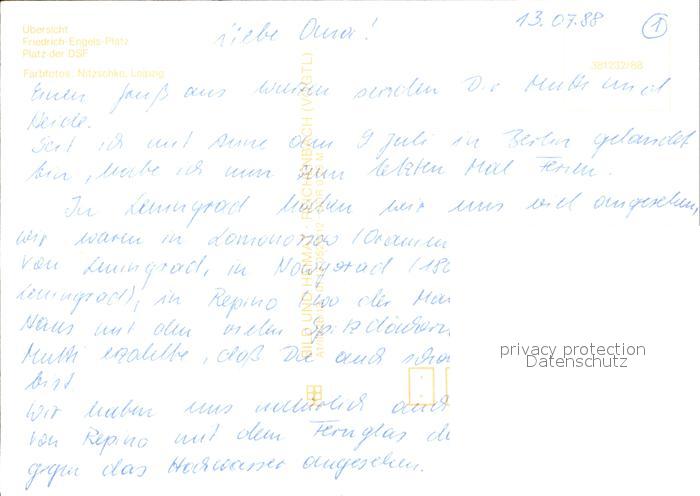 Übersicht
Friedrich-Engels-Platz
Platz der DSF
Farbfotos: Nitzschke, Leipzig
13.07.88 1
381232/88
Liebe Oma!
Einen Gruß aus senden Dir Mutti und
Heide.
Seit ich mit Anne dem 9 Juli in Berlin gelandet
bin, habe ich nun zum letzten Mal Ferien.
In Leningrad haben wir uns viel angesehen,
wir waren in Lomonossow (Oranien
von Leningrad, in Nowgorod (180
Leningrad), in Repino (wo der Ma
Haus mit den vielen Spitzdächern
Mutti erzählte, daß Du auch scho
bist.
Wir haben uns natürlich auch
von Repino mit dem Fernglas de
gegen das Hochwasser angesehen.
BILD UND HEIMAT REICHENBACH (VOGTL)
privacy protection
Datenschutz